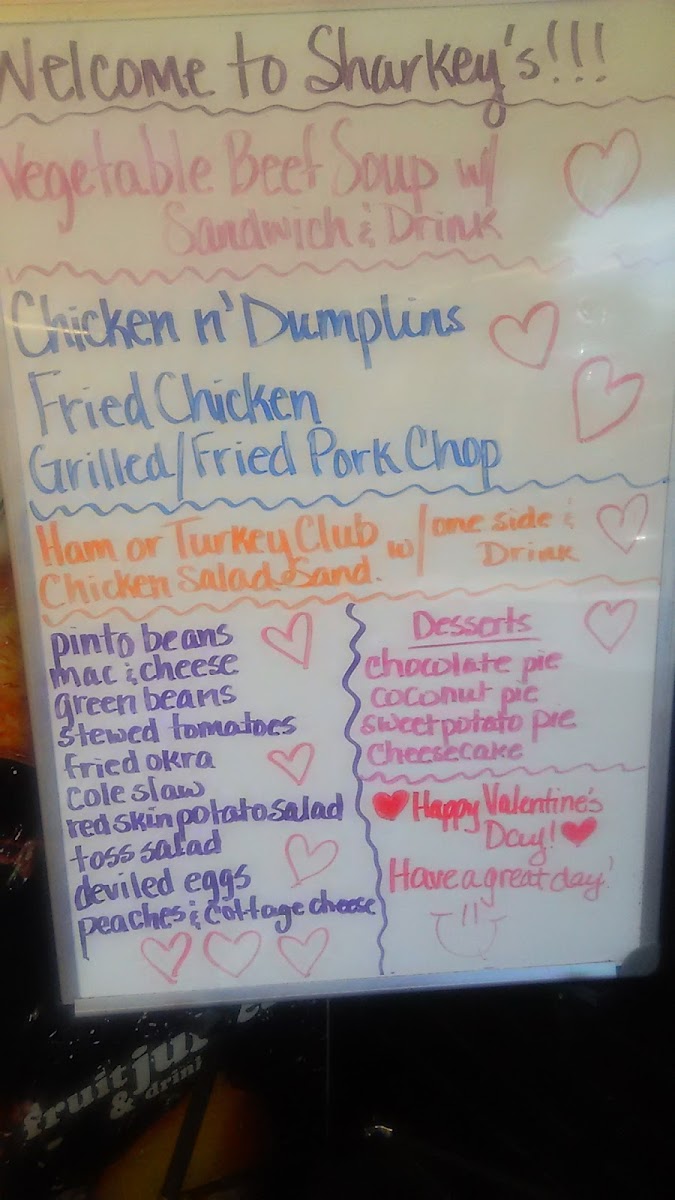 Welcome to Sharkey's!!!
Vegetable Beef Soup w/
Sandwich & Drink
Chicken n' Dumplins
Fried Chicken
Grilled/Fried Pork Chop
Ham or Turkey Club w/ one side &
Chicken Salad Sand. Drink
pinto beans
mac & cheese
green beans
stewed tomatoes
fried okra
cole slaw
red skin potato salad
toss salad
deviled eggs
peaches & cottage cheese
Desserts
chocolate pie
coconut pie
sweet potato pie
Cheesecake
Happy Valentine's
Day!
Have a great day!
fruit
& drink